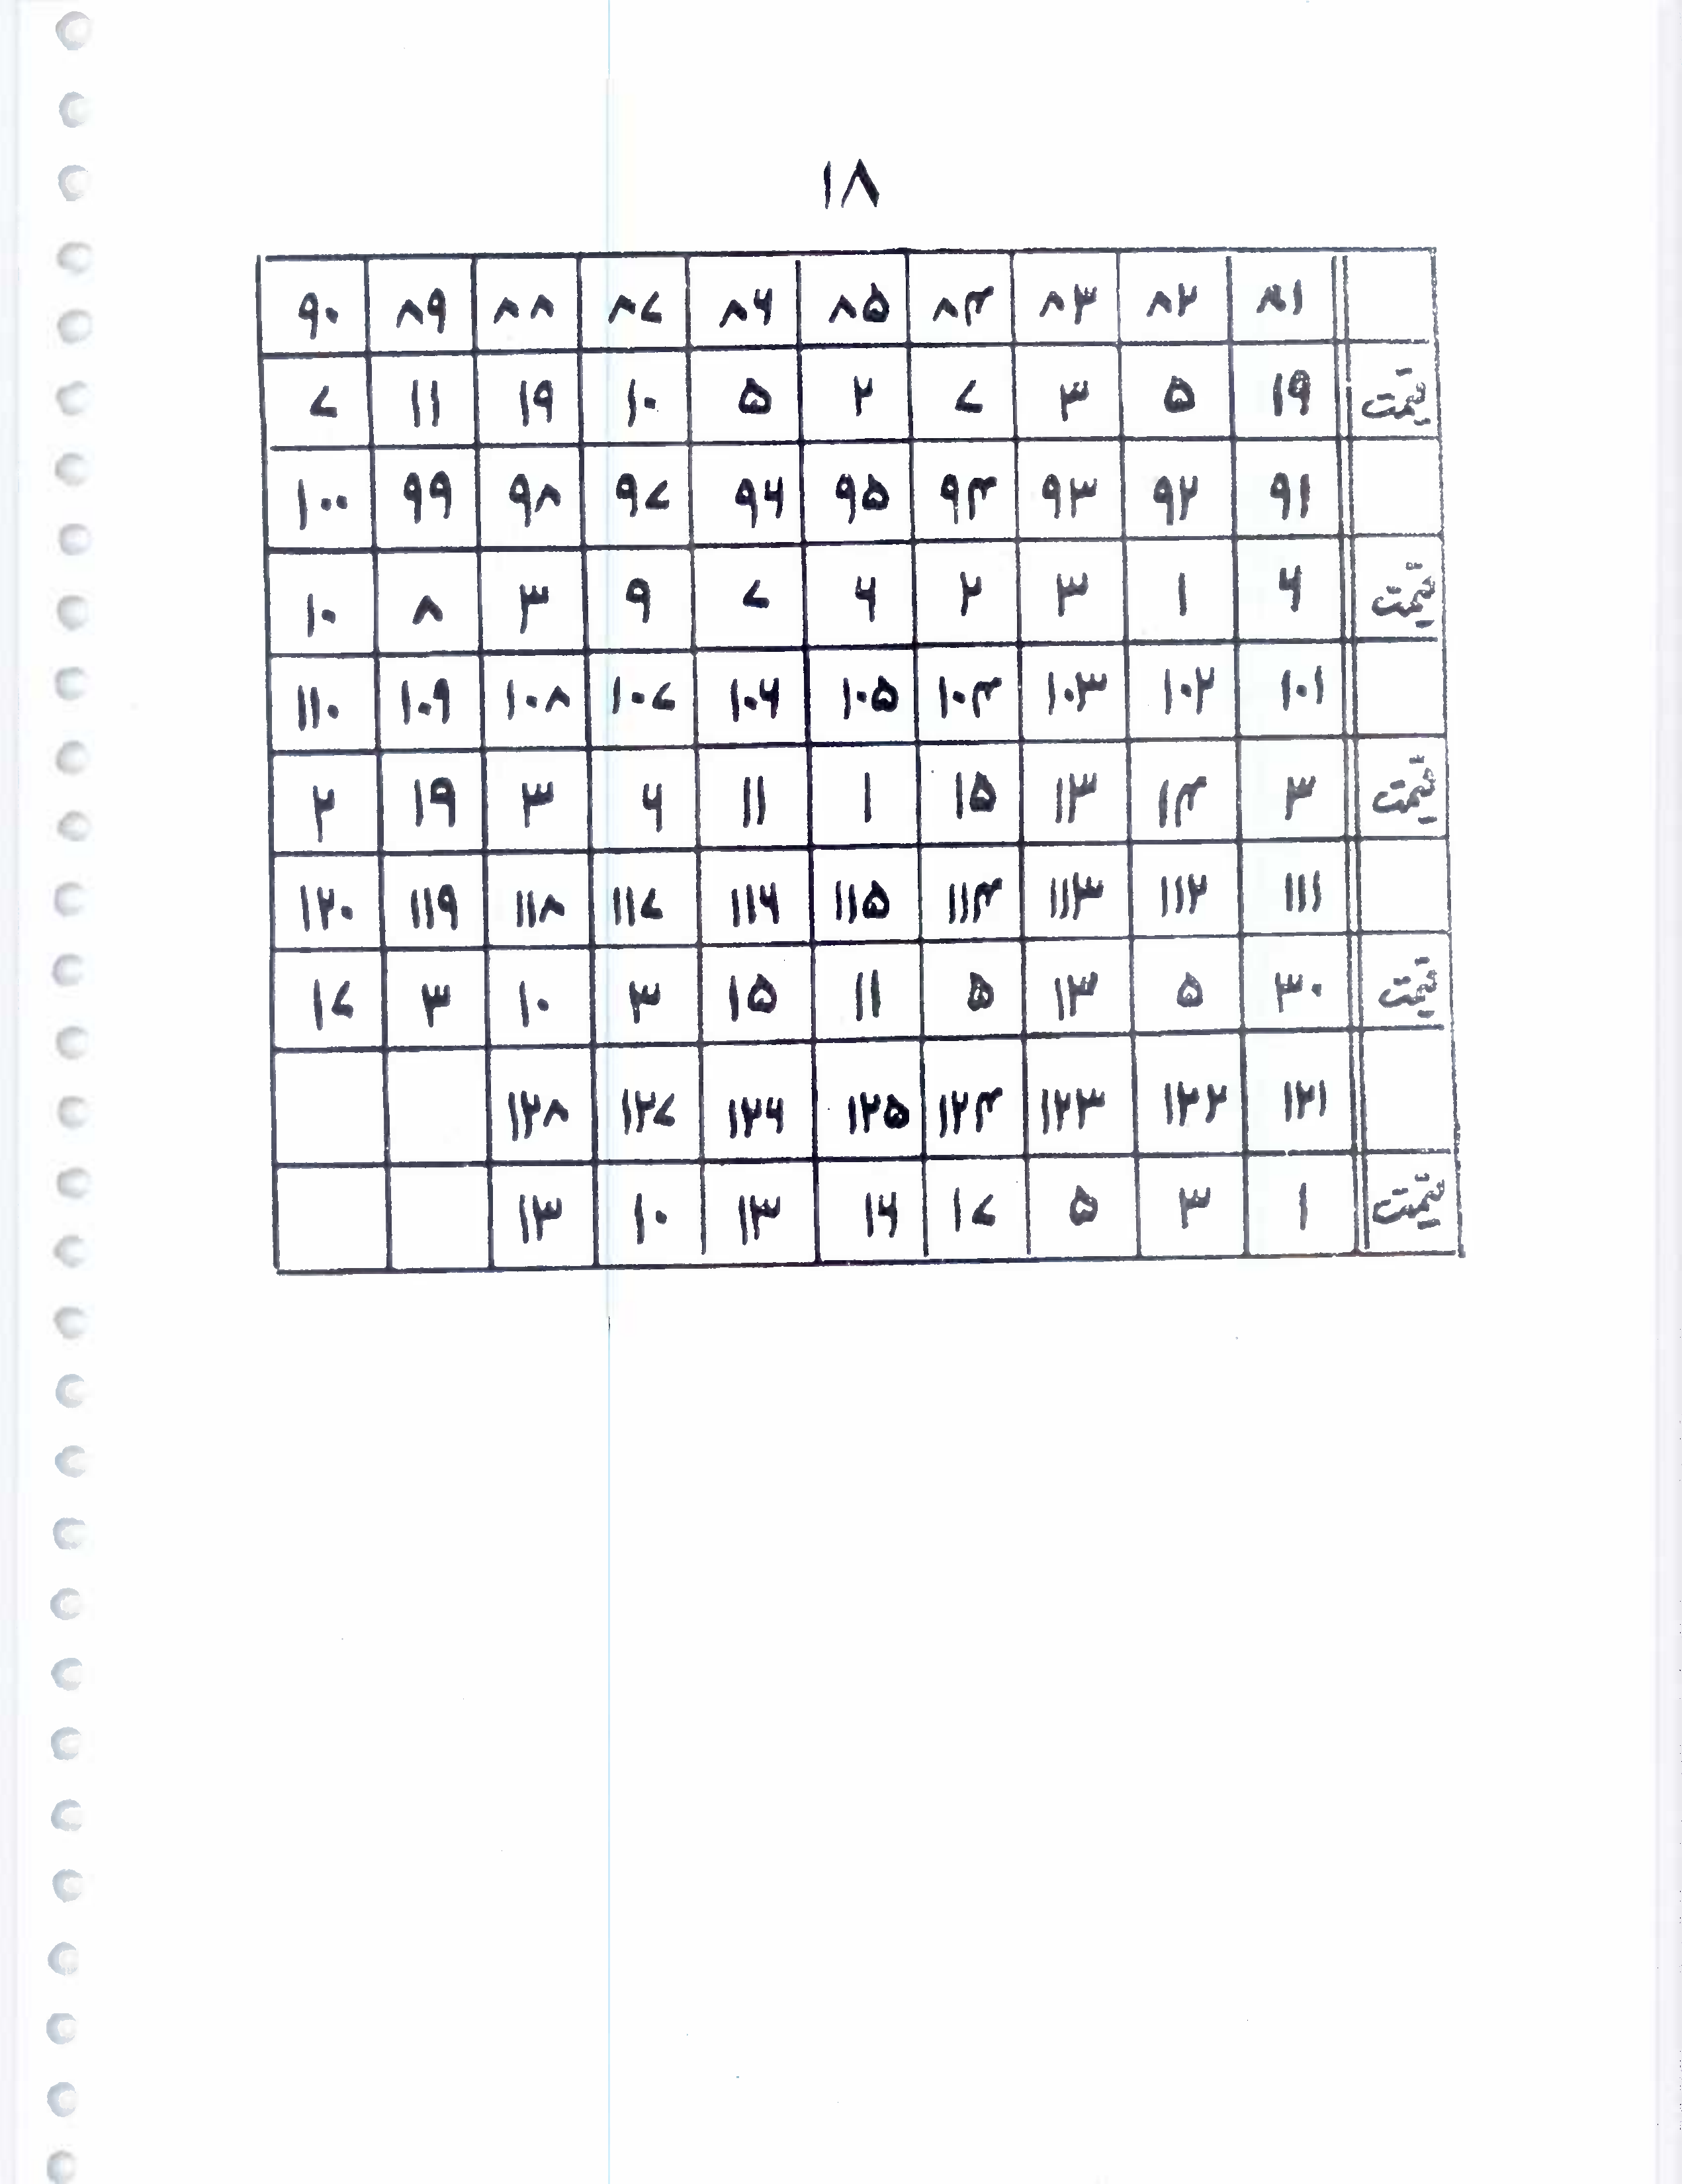 ۱۸
۸۱ ۸۲ ۸۳ ۸۴ ۸۵ ۸۶ ۸۷ ۸۸ ۸۹ ۹۰
قیمت ۱۹ ۵ ۳ ۷ ۲ ۵ ۱۰ ۱۹ ۱۱ ۷
۹۱ ۹۲ ۹۳ ۹۴ ۹۵ ۹۶ ۹۷ ۹۸ ۹۹ ۱۰۰
قیمت ۶ ۱ ۳ ۲ ۶ ۷ ۹ ۳ ۸ ۱۰
۱۰۱ ۱۰۲ ۱۰۳ ۱۰۴ ۱۰۵ ۱۰۶ ۱۰۷ ۱۰۸ ۱۰۹ ۱۱۰
قیمت ۳ ۱۴ ۱۳ ۱۵ ۱ ۱۱ ۶ ۳ ۱۹ ۲
۱۱۱ ۱۱۲ ۱۱۳ ۱۱۴ ۱۱۵ ۱۱۶ ۱۱۷ ۱۱۸ ۱۱۹ ۱۲۰
قیمت ۳۰ ۵ ۱۳ ۵ ۱۱ ۱۵ ۳ ۱۰ ۳ ۱۷
۱۲۱ ۱۲۲ ۱۲۳ ۱۲۴ ۱۲۵ ۱۲۶ ۱۲۷ ۱۲۸
قیمت ۱ ۳ ۵ ۱۷ ۱۶ ۱۳ ۱۰ ۱۳